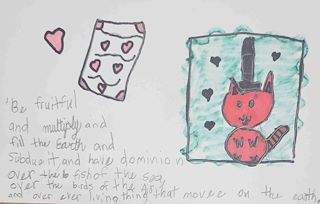 "Be fruitful
and multiply and
fill the Earth and
subdue it, and have dominion
over the fish of the sea,
over the birds of the air,
and over ever living thing that moves on the earth.